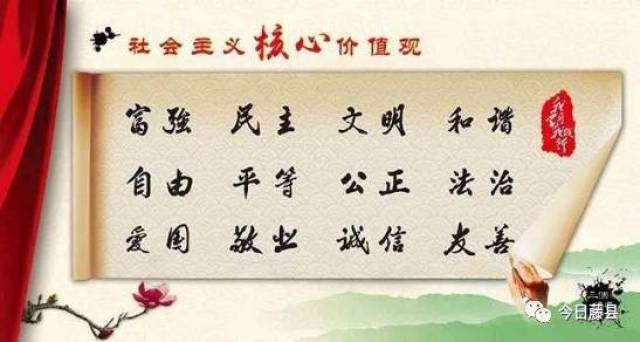 社会主义核心价值观
富强 民主 文明 和谐
自由 平等 公正 法治
爱国 敬业 诚信 友善
今日藤县